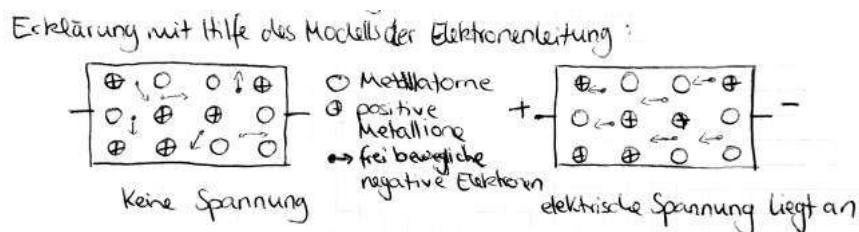 Erklärung mit Hilfe des Modells der Elektronenleitung:
○ Metallatome
⊕ positive
Metallione
•→ frei bewegliche
negative Elektronen
+ -
Keine Spannung
elektrische Spannung liegt an